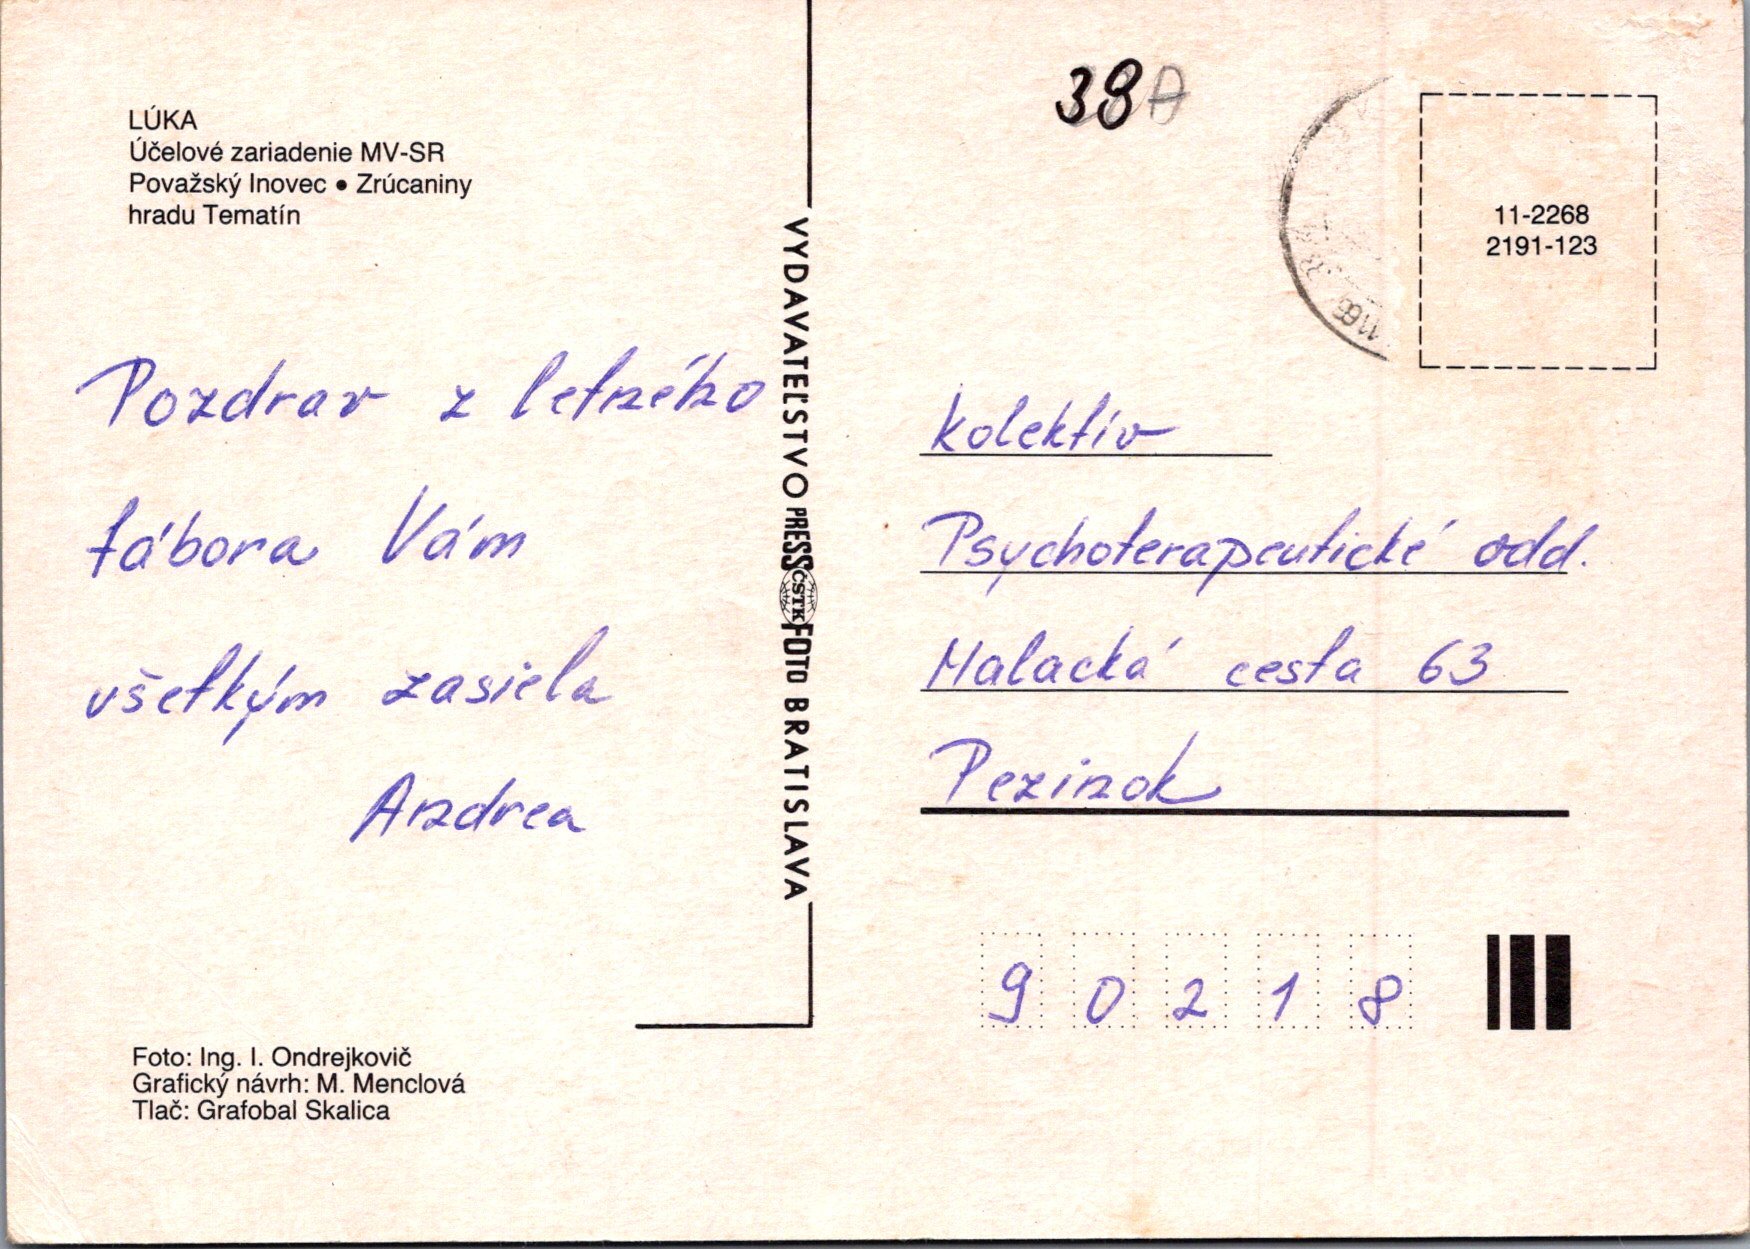 LÚKA
Účelové zariadenie MV-SR
Považský Inovec • Zrúcaniny
hradu Tematín
Pozdrav z letného
tábora Vám
všetkým zasiela
Andrea
Foto: Ing. I. Ondrejkovič
Grafický návrh: M. Menclová
Tlač: Grafobal Skalica
VYDAVATEĽSTVO PRESSFOTO BRATISLAVA
ČSTK
38
11-2268
2191-123
kolektív
Psychoterapeutické odd.
Malacká cesta 63
Pezinok
90218